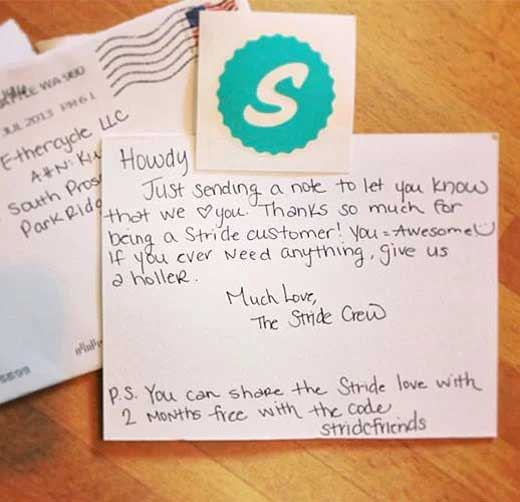 WA 980
JUL 2013 PM 6 L
Ethercycle LLC
Attn: Ku
South Pros
Park Ridg
S
Howdy
Just sending a note to let you know
that we ♡ you. Thanks so much for
being a Stride customer! You = Awesome!
If you ever need anything, give us
a holler.
Much Love,
The Stride Crew
P.S. You can share the Stride love with
2 months free with the code
stridefriends